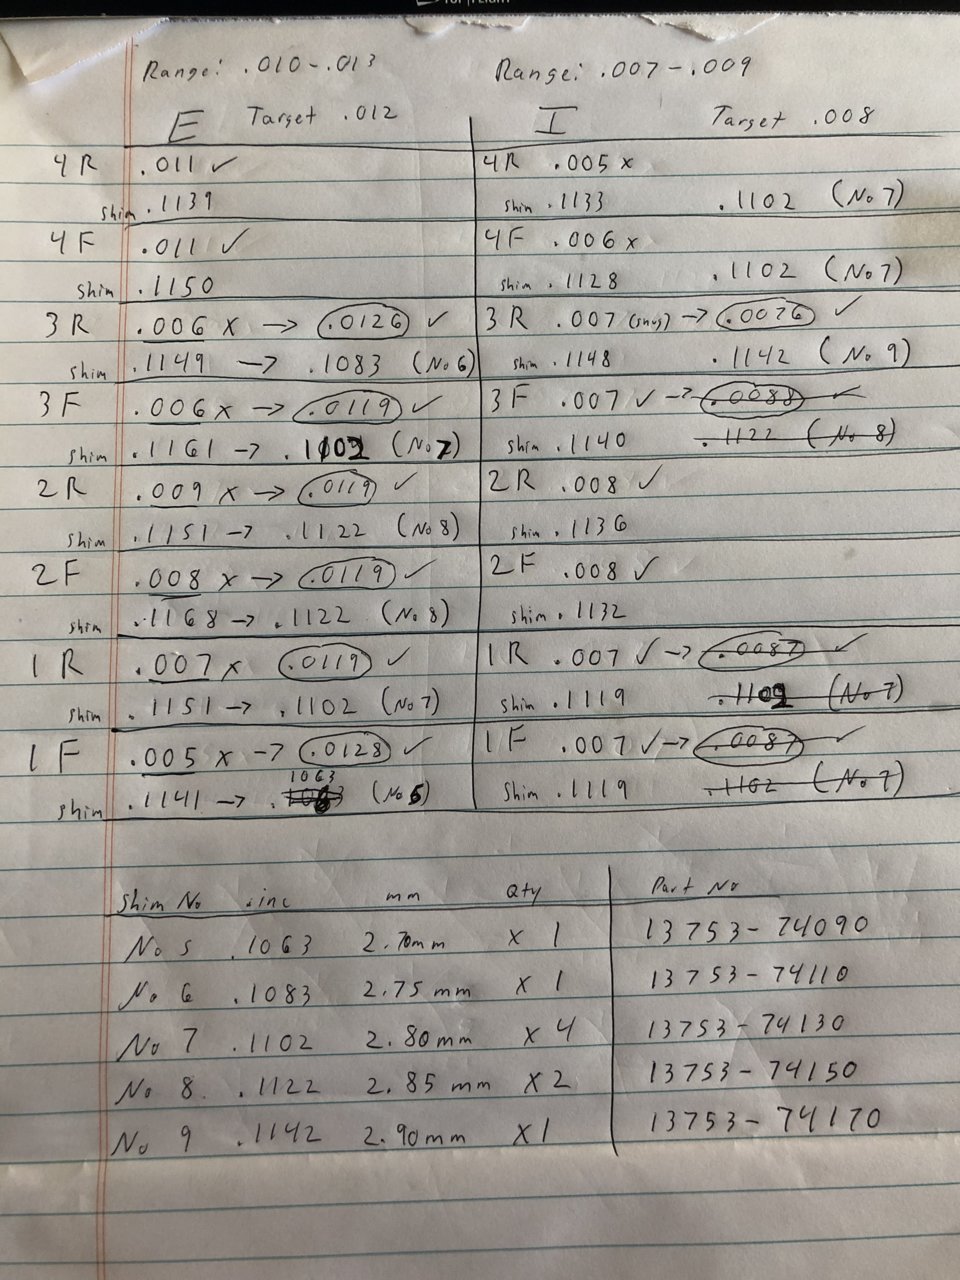 Range: .010-.013 Range: .007-.009
E Target .012 I Target .008
4R .011 ✓ 4R .005 x
shim .1139 shim .1133 .1102 (No 7)
4F .011 ✓ 4F .006 x
shim .1150 shim .1128 .1102 (No 7)
3R .006 x -> .0126 ✓ 3R .007 (snug) -> .0076 ✓
shim .1149 -> .1083 (No 6) shim .1148 .1142 (No 9)
3F .006 x -> .0119 ✓ 3F .007 ✓ -> .0088 ✓
shim .1161 -> .1102 (No 7) shim .1140 .1122 (No 8)
2R .009 x -> .0119 ✓ 2R .008 ✓
shim .1151 -> .1122 (No 8) shim .1136
2F .008 x -> .0119 ✓ 2F .008 ✓
shim .1168 -> .1122 (No 8) shim .1132
1R .007 x .0119 ✓ 1R .007 ✓ -> .0087 ✓
shim .1151 -> .1102 (No 7) shim .1119 .1102 (No 7)
1F .005 x -> .0128 ✓ 1F .007 ✓ -> .0087 ✓
1063
shim .1141 -> (No 5) shim .1119 .1102 (No 7)
Shim No .inc mm Qty Part No
No 5 .1063 2.70mm x 1 13753-74090
No 6 .1083 2.75 mm x 1 13753-74110
No 7 .1102 2.80mm x 4 13753-74130
No 8 .1122 2.85 mm x2 13753-74150
No 9 .1142 2.90mm x1 13753-74170